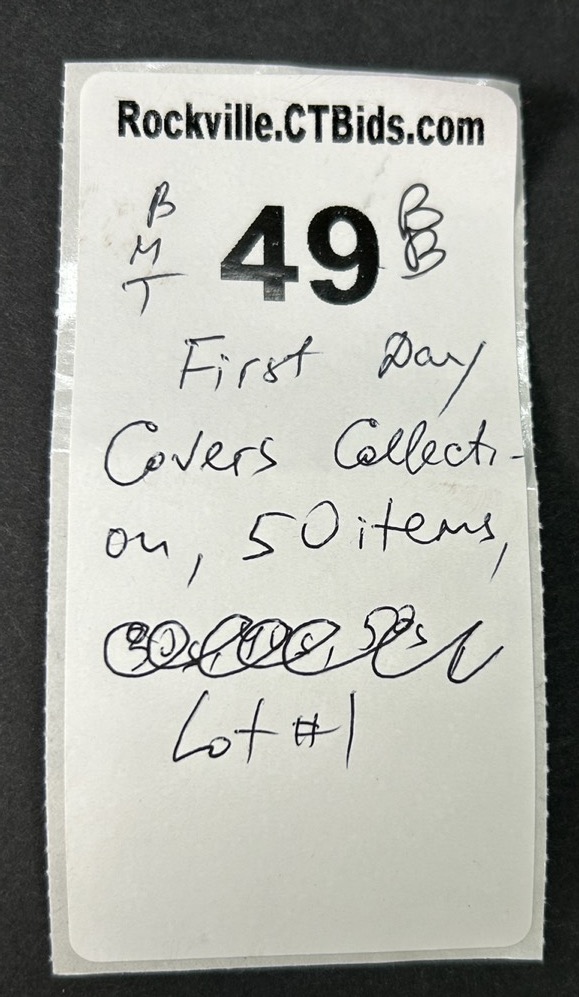 Rockville.CTBids.com
B
M
T
49
B
B
First Day
Covers Collecti-
on, 50 items,
30s, 40s, 50s
Lot #1